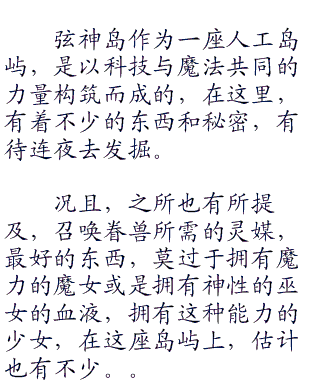 弦神岛作为一座人工岛
屿，是以科技与魔法共同的
力量构筑而成的，在这里，
有着不少的东西和秘密，有
待连夜去发掘。
况且，之所也有所提
及，召唤眷兽所需的灵媒，
最好的东西，莫过于拥有魔
力的魔女或是拥有神性的巫
女的血液，拥有这种能力的
少女，在这座岛屿上，估计
也有不少。。